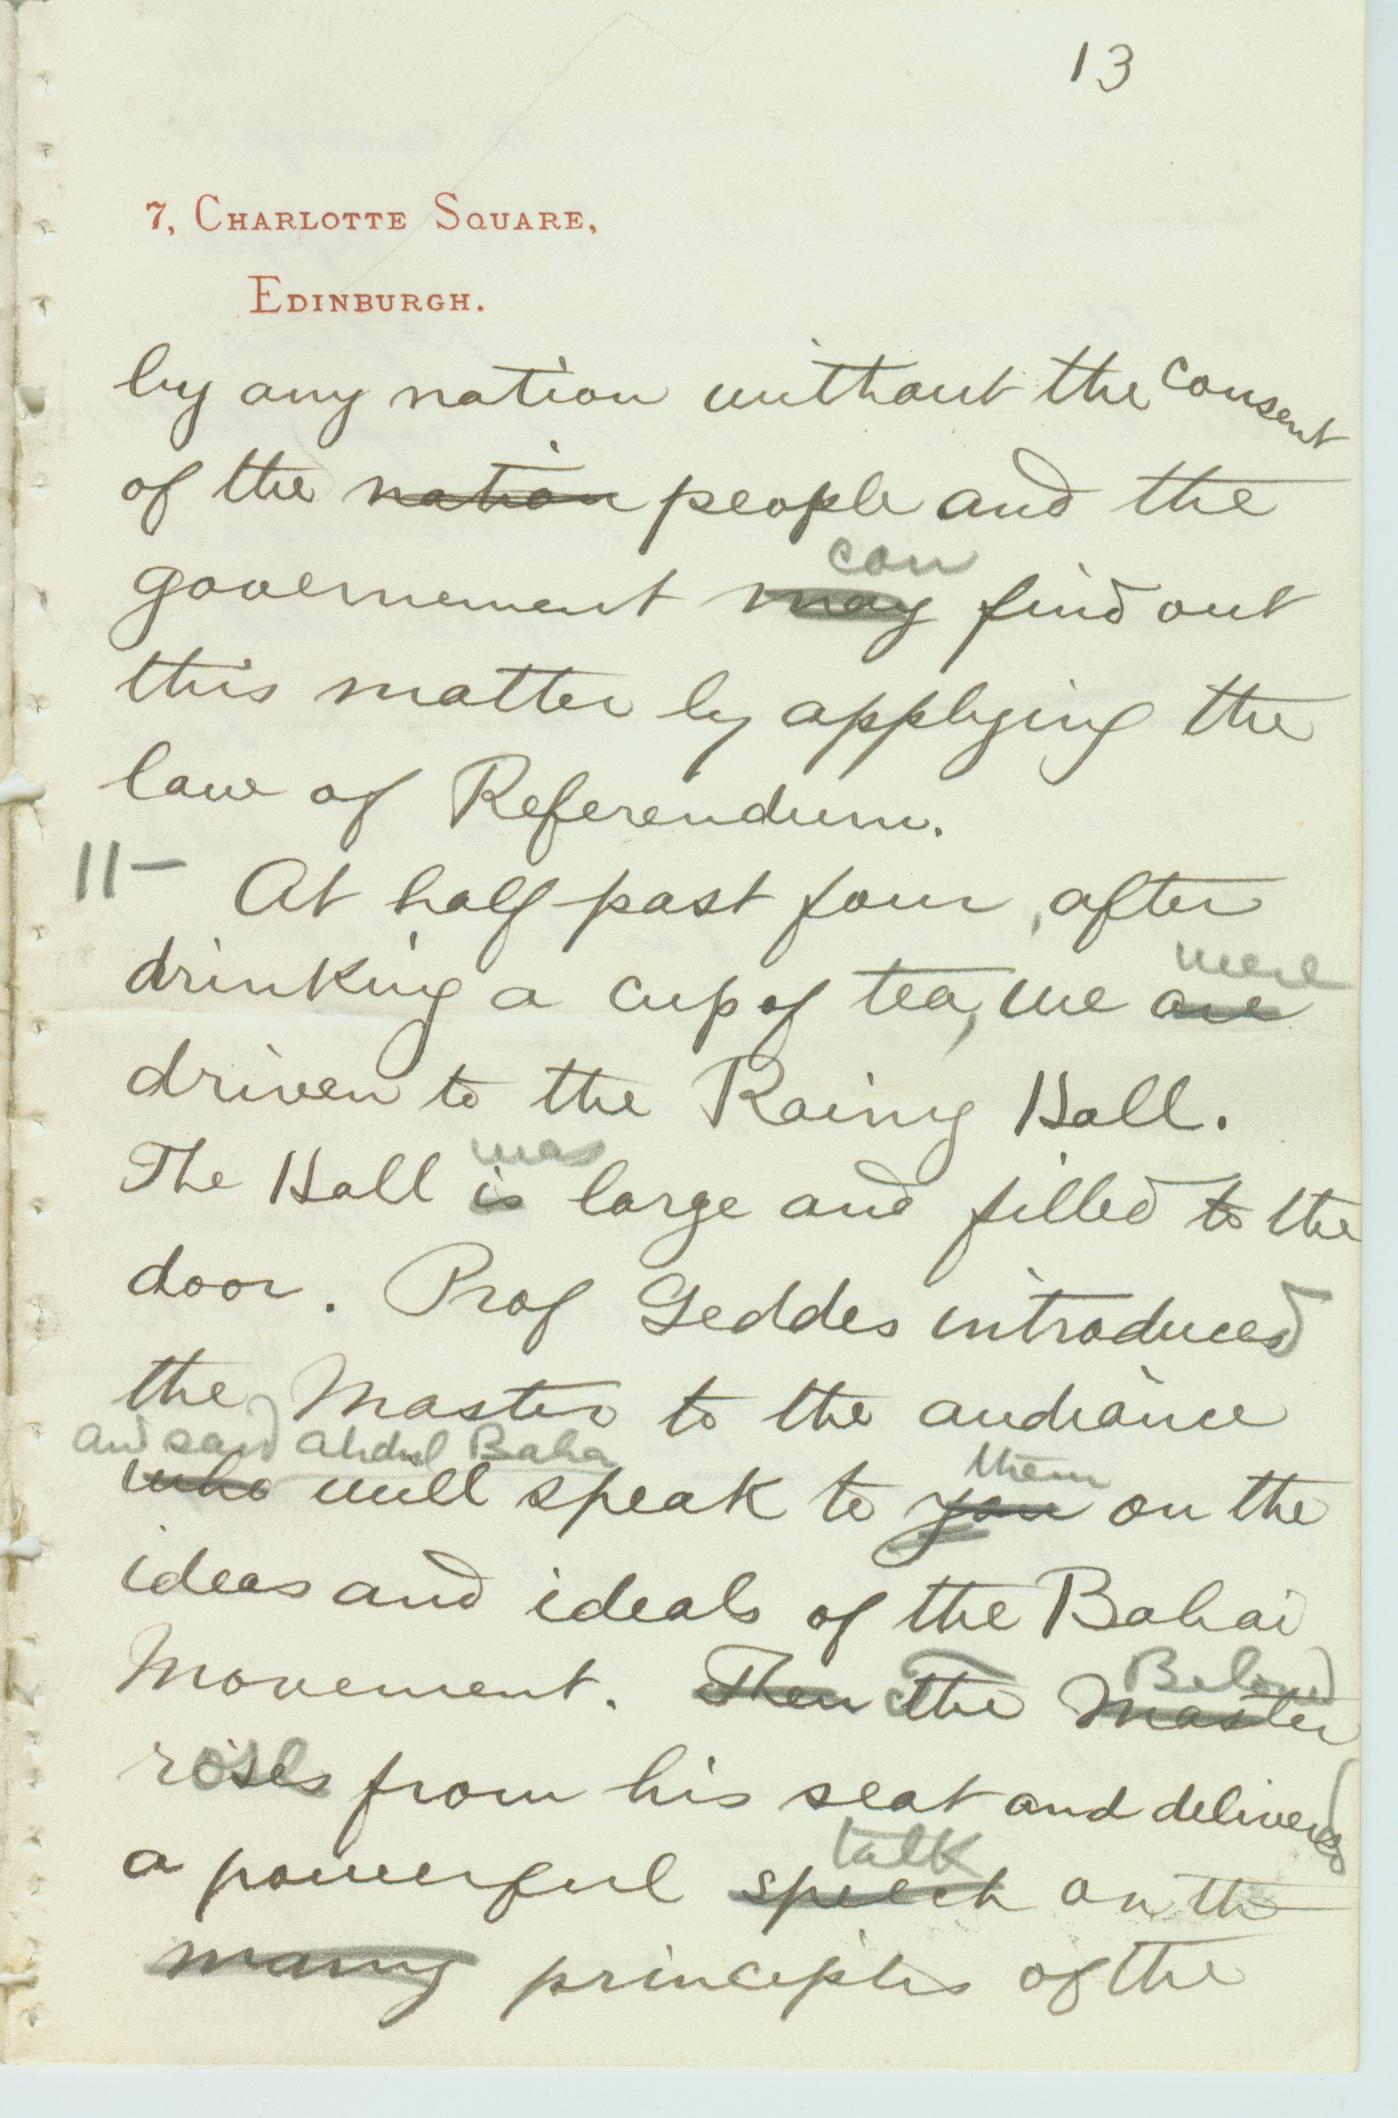 13
7, Charlotte Square,
Edinburgh.
by any nation without the consent
of the nation people and the
can
governement may find out
this matter by applying the
law of Referendum.
11- At half past four, after
were
drinking a cup of tea, we are
driven to the Rainy Hall.
was
The Hall is large and filled to the
door. Prof Geddes introduced
the Master to the audiance
and said Abdul Baha them
who will speak to you on the
ideas and ideals of the Bahai
Beloved
Movement. Then The Master
rose from his seat and delivered
talk
a powerful speech on the
many principles of the